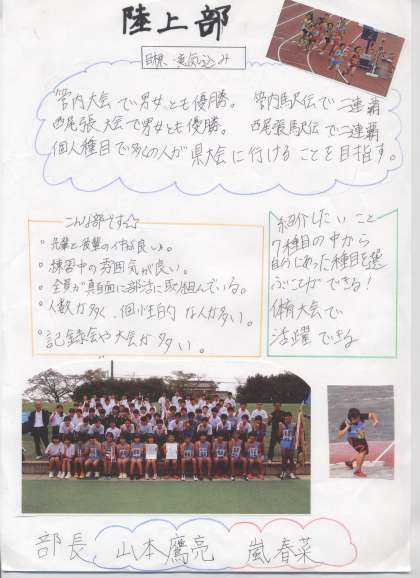 陸上部
目標・意気込み
管内大会で男女とも優勝。 管内駅伝で二連覇
西尾張大会で男女とも優勝。 西尾張駅伝で二連覇
個人種目で多くの人が県大会に行けることを目指す。
こんな部です☆
・先輩と後輩の仲が良い。
・練習中の雰囲気が良い。
・全員が真面目に部活に取り組んでいる。
・人数が多く、個性的な人が多い。
・記録会や大会が多い。
紹介したいこと
7種目の中から
自分にあった種目を選
ぶことができる!
体育大会で
活躍できる
部長 山本鷹亮 嵐春菜